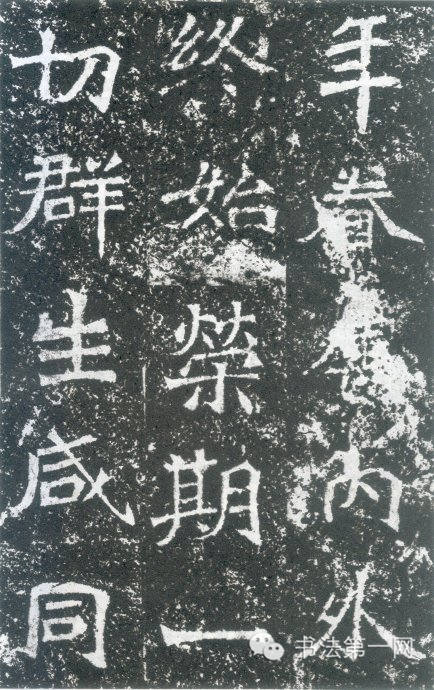 年眷属内外
終始榮期一
切群生咸同
书法第一网